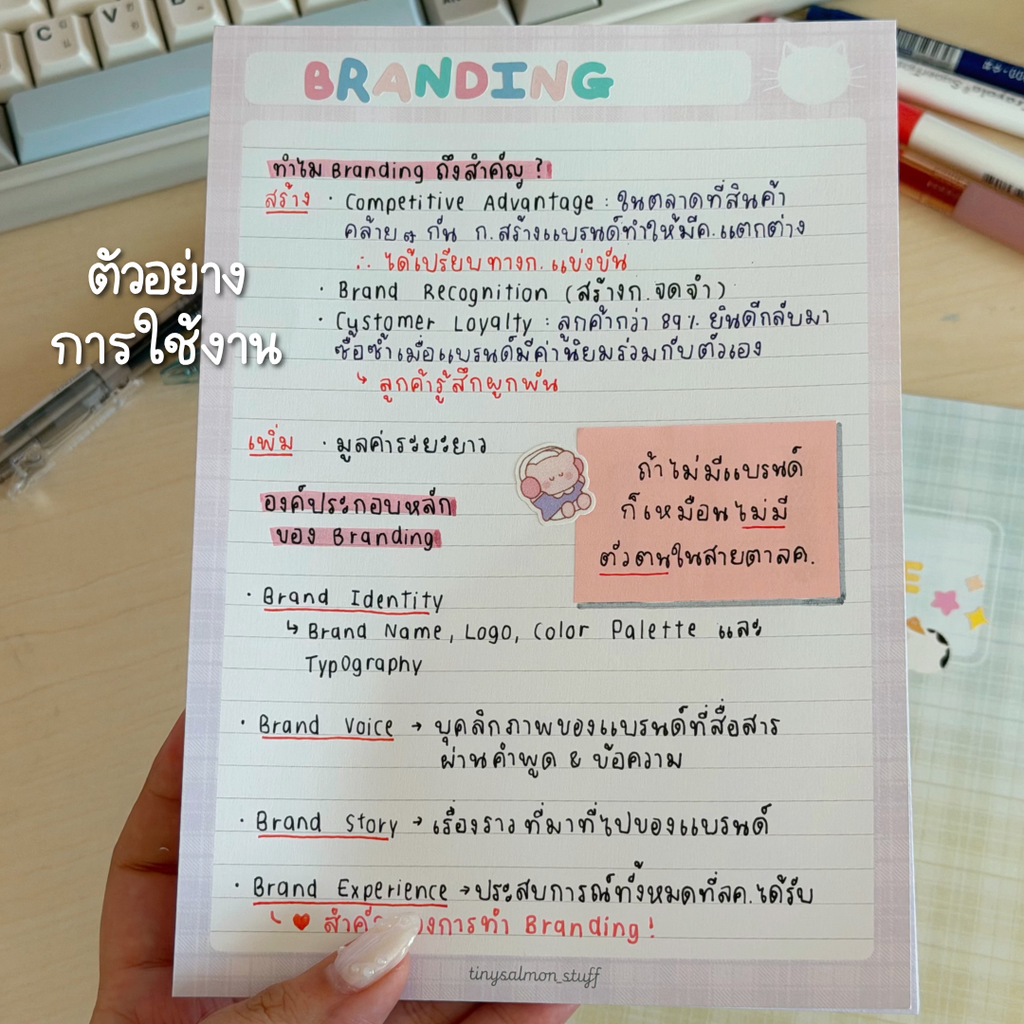 C
V
B
BRANDING
ทำไม Branding ถึงสำคัญ ?
สร้าง · Competitive Advantage : ในตลาดที่สินค้า
คล้าย ๆ กัน ก.สร้างแบรนด์ทำให้มีค.แตกต่าง
∴ ได้เปรียบทางก.แข่งขัน
· Brand Recognition (สร้างก.จดจำ)
· Customer Loyalty : ลูกค้ากว่า 89% ยินดีกลับมา
ซื้อซ้ำเมื่อแบรนด์มีค่านิยมร่วมกับตัวเอง
↳ ลูกค้ารู้สึกผูกพัน
ตัวอย่าง
การใช้งาน
เพิ่ม · มูลค่าระยะยาว
ถ้าไม่มีแบรนด์
ก็เหมือนไม่มี
ตัวตนในสายตาลค.
องค์ประกอบหลัก
ของ Branding
· Brand Identity
↳ Brand Name, Logo, Color Palette และ
Typography
· Brand Voice → บุคลิกภาพของแบรนด์ที่สื่อสาร
ผ่านคำพูด & ข้อความ
· Brand Story → เรื่องราว ที่มาที่ไปของแบรนด์
· Brand Experience → ประสบการณ์ทั้งหมดที่ลค.ได้รับ
↳ ♥ การทำ Branding !
tinysalmon_stuff